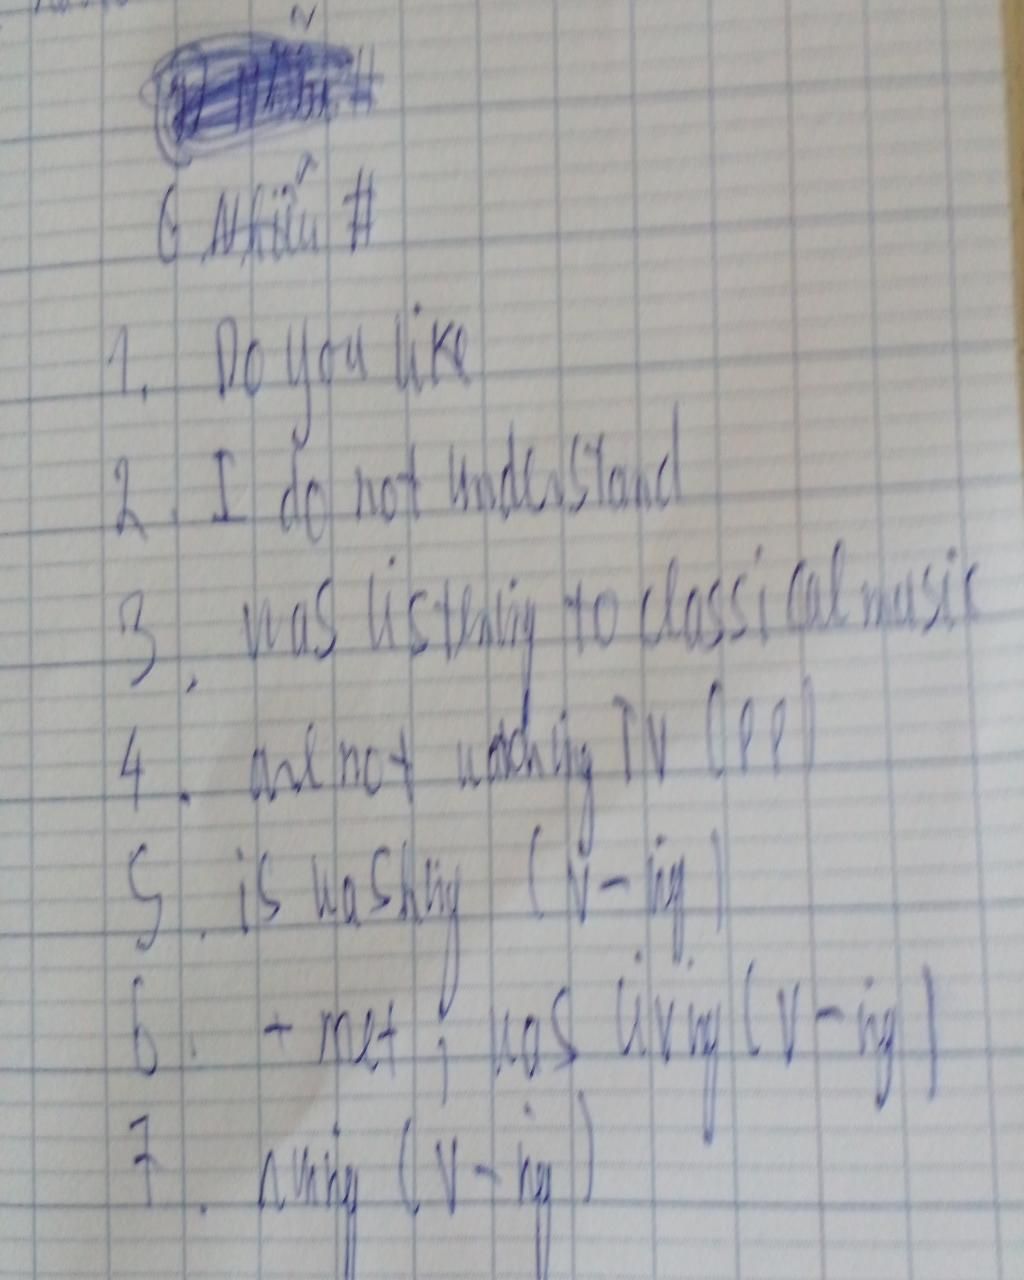 6 Nhiều #
1. Do you like
2. I do not understand
3. was listening to classical music
4. are not watching TV (PP)
5. is washing (V-ing)
6. + met ; was living (V-ing)
7. (V-ing)